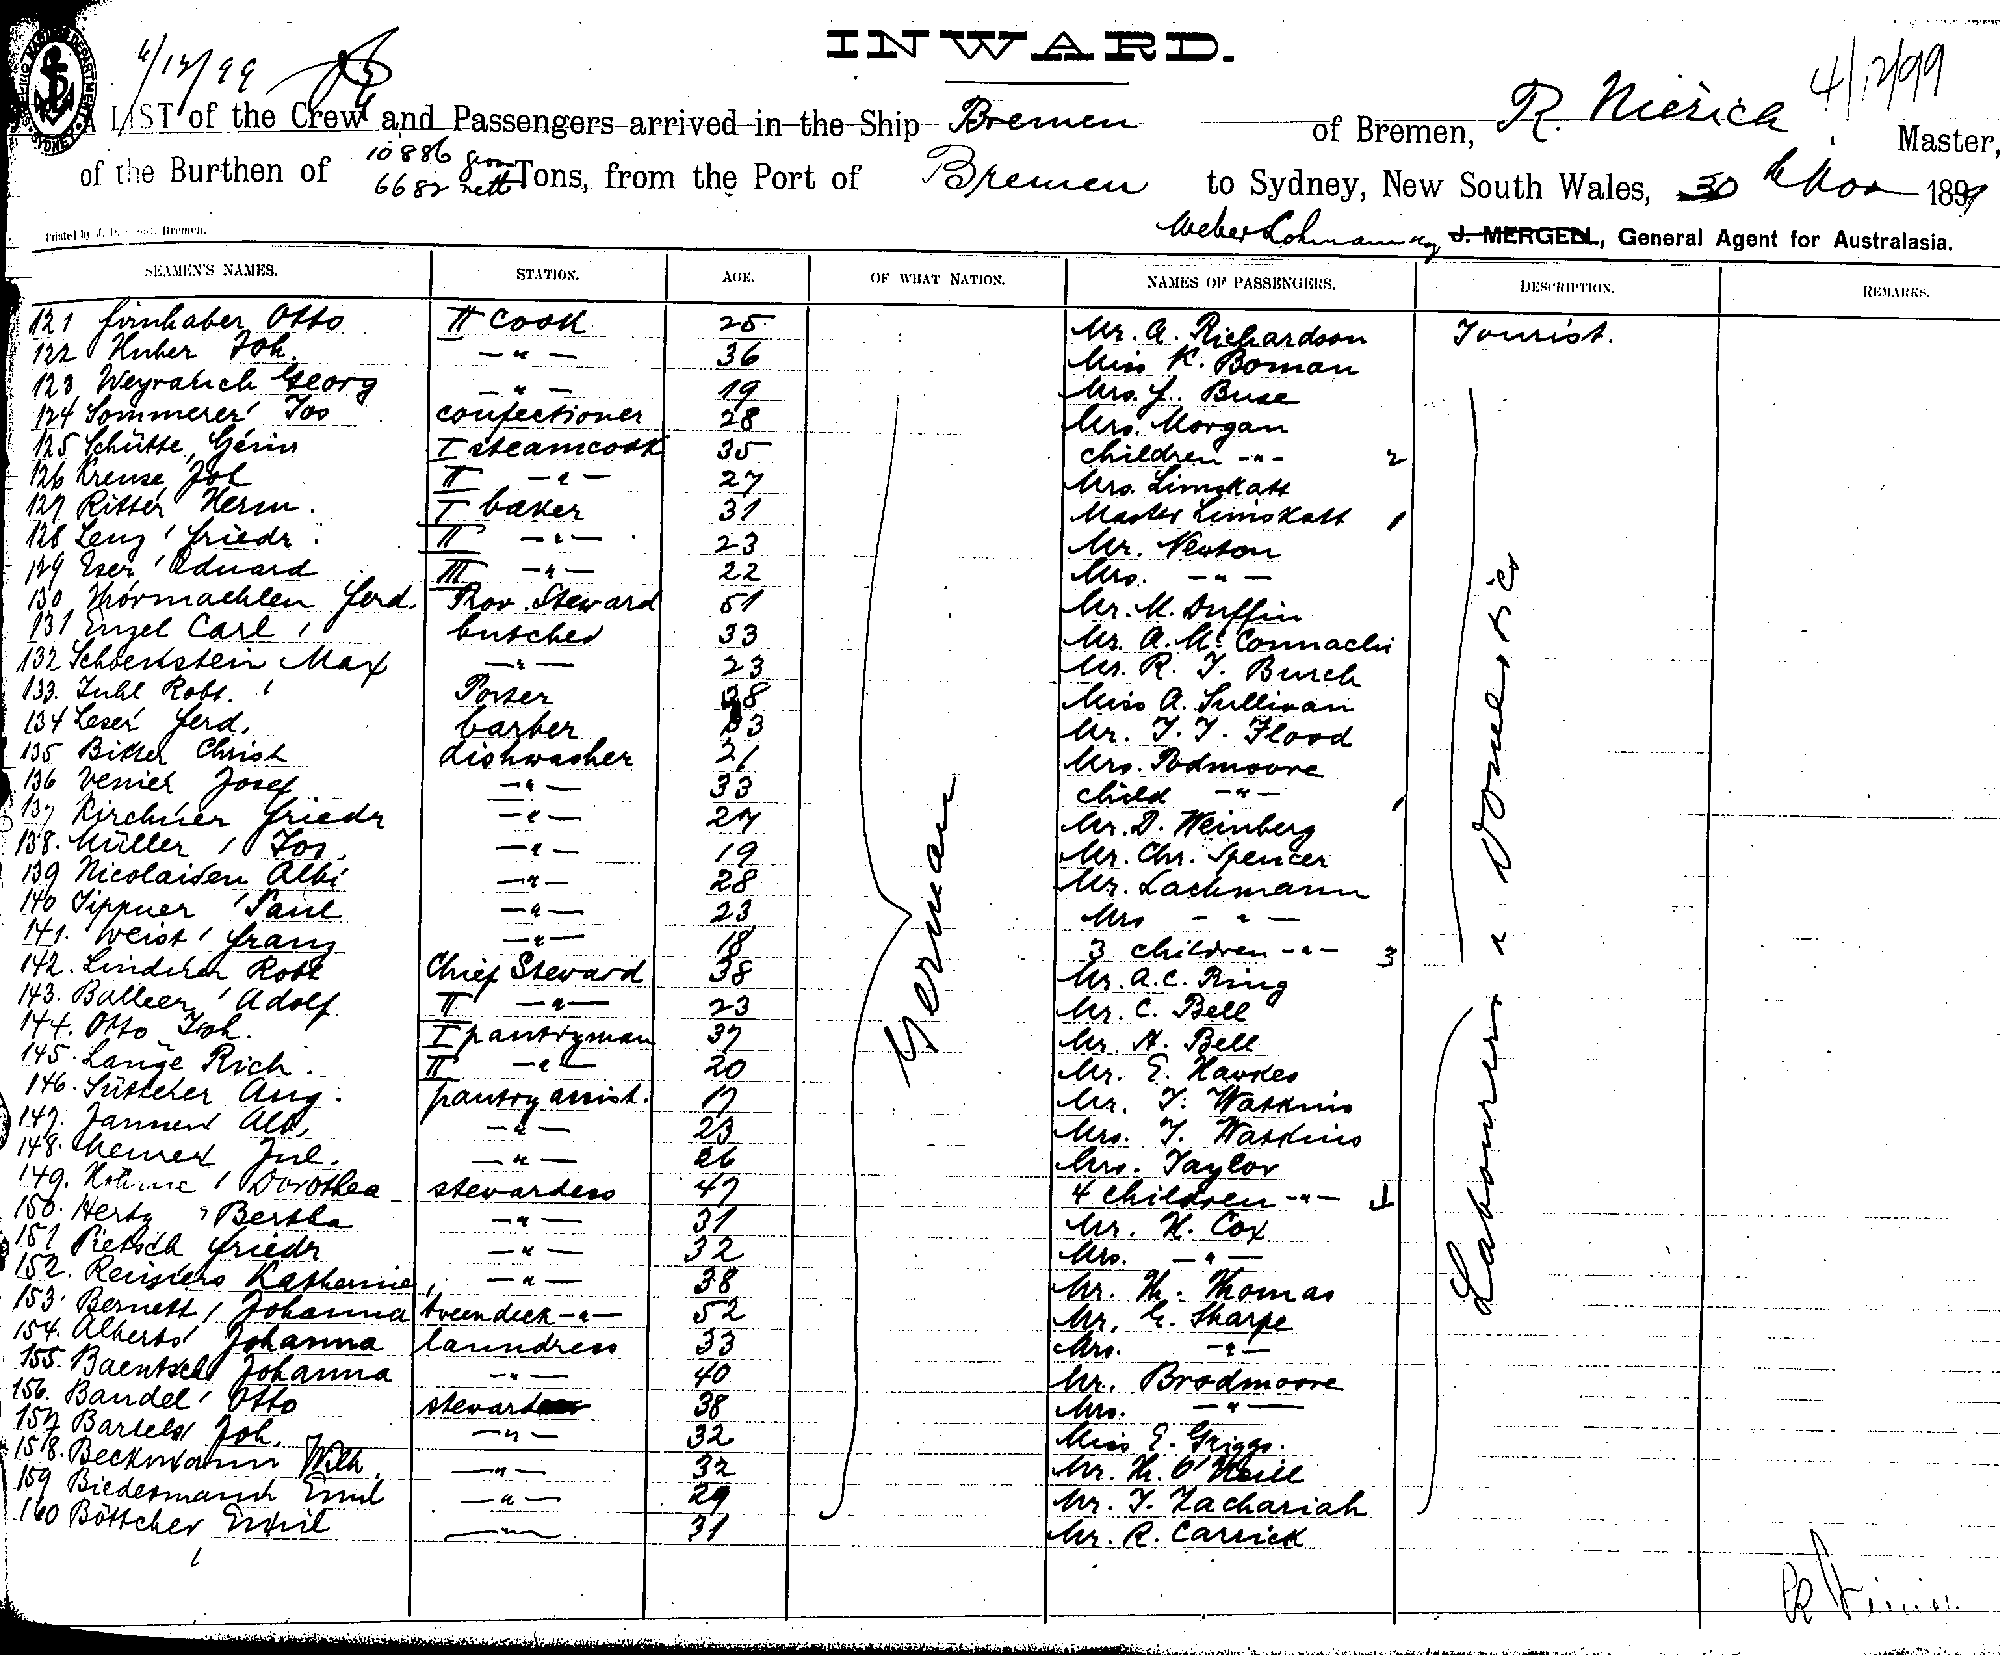 INWARD.
4/12/99
4/12/99
LIST of the Crew and Passengers arrived in the Ship Bremen of Bremen, R. Nierich Master,
of the Burthen of 10886 gross 6682 nett Tons, from the Port of Bremen to Sydney, New South Wales, 30 Nov 1899
Weber Lohmann J. MERGELL, General Agent for Australasia.
SEAMEN'S NAMES. STATION. AGE. OF WHAT NATION. NAMES OF PASSENGERS. DESCRIPTION. REMARKS.
121 Firnhaber Otto II Cook 25 Mr. A. Richardson Tourist.
122 Huber Joh. —"— 36 Miss K. Boman
123 Weyrauch Georg —"— 19 Mrs. J. Buse
124 Sommerer Jos confectioner 28 Mrs. Morgan
125 Schütte, I steamcook 35 children -"- 2
126 Kreuse Joh II —"— 27 Mrs. Limskatt
127 Ritter Herm. I baker 31 Master Limskatt 1
128 Lenz Friedr. II —"— 23 Mr. Newton
129 Eser Eduard III —"— 22 Mrs. —"—
130 Thörmaehlen Ferd. Prov. Steward 51 Mr. M. Duffin
131 Engel Carl butcher 33 Mr. A. McConnachi
132 Schoenstein Max —"— 23 Mr. R. T. Burch
133. Juhl Robt. Porter 38 Miss A. Sullivan
134 Leser Ferd. barber 33 Mr. T. T. Flood
135 Bitter Christ dishwasher 21 Mrs. Podmoore
136 Venier Josef —"— 33 child —"— 1
137 Kirchner Friedr —"— 27 Mr. D. Weinberg
138. Müller Jos. —"— 19 Mr. Chr. Spencer
139 Nicolaisen Albi —"— 28 Mr. Lachmann
140 Tippner Paul —"— 23 Mrs —"—
141. Weist Franz —"— 18 3 children -"- 3
142. Lindner Robt Chief Steward 38 Mr. A. C. Ring
143. Balleer Adolf II —"— 23 Mr. C. Bell
144. Otto Joh. I pantryman 37 Mr. H. Bell
145. Lange Rich. II —"— 20 Mr. E. Hawkes
146. Sütscher Aug. pantry assist. 17 Mr. T. Watkins
147. Janssen Alb. —"— 23 Mrs. T. Watkins
148. Meiner Jul. —"— 26 Mrs. Taylor
149. Dorothea stewardess 47 4 children -"-
150. Hertz Bertha —"— 31 Mr. H. Cox
151 Rietsch Friedr —"— 32 Mrs. —"—
152. Reiners Katherine, —"— 38 Mr. Th. Thomas
153. Bernett, Johanna tweendeck —"— 52 Mr. G. Sharpe
154. Alberts Johanna laundress 33 Mrs. —"—
155. Baentsch Johanna —"— 40 Mr. Brodmoore
156. Bandel Otto steward 38 Mrs. —"—
157 Bartels Joh. —"— 32 Miss E. Griggs.
158. Beckmann Wilh. —"— 32 Mr. Th. O'Neill
159 Biedermann Emil —"— 29 Mr. T. Zachariah
160 Böttcher Emil —"— 31 Mr. R. Carrick
German
Labourers & Domestics